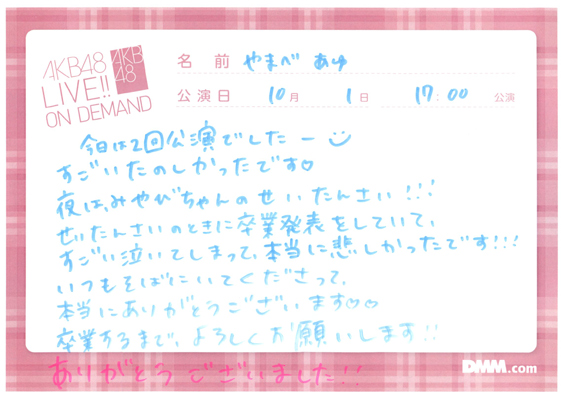 AKB48
LIVE!!
ON DEMAND
AKB
48
名前 やまべ あゆ
公演日 10月 1日 17:00 公演
今日は2回公演でしたー
すごいたのしかったです♡
夜は、みやびちゃんのせいたんさい!!!
せいたんさいのときに卒業発表をしていて、
すごい泣いてしまって、本当に悲しかったです!!!
いつもそばにいてくださって、
本当にありがとうございます♡♡
卒業するまで、よろしくお願いします!!
ありがとうございました!!
DMM.com